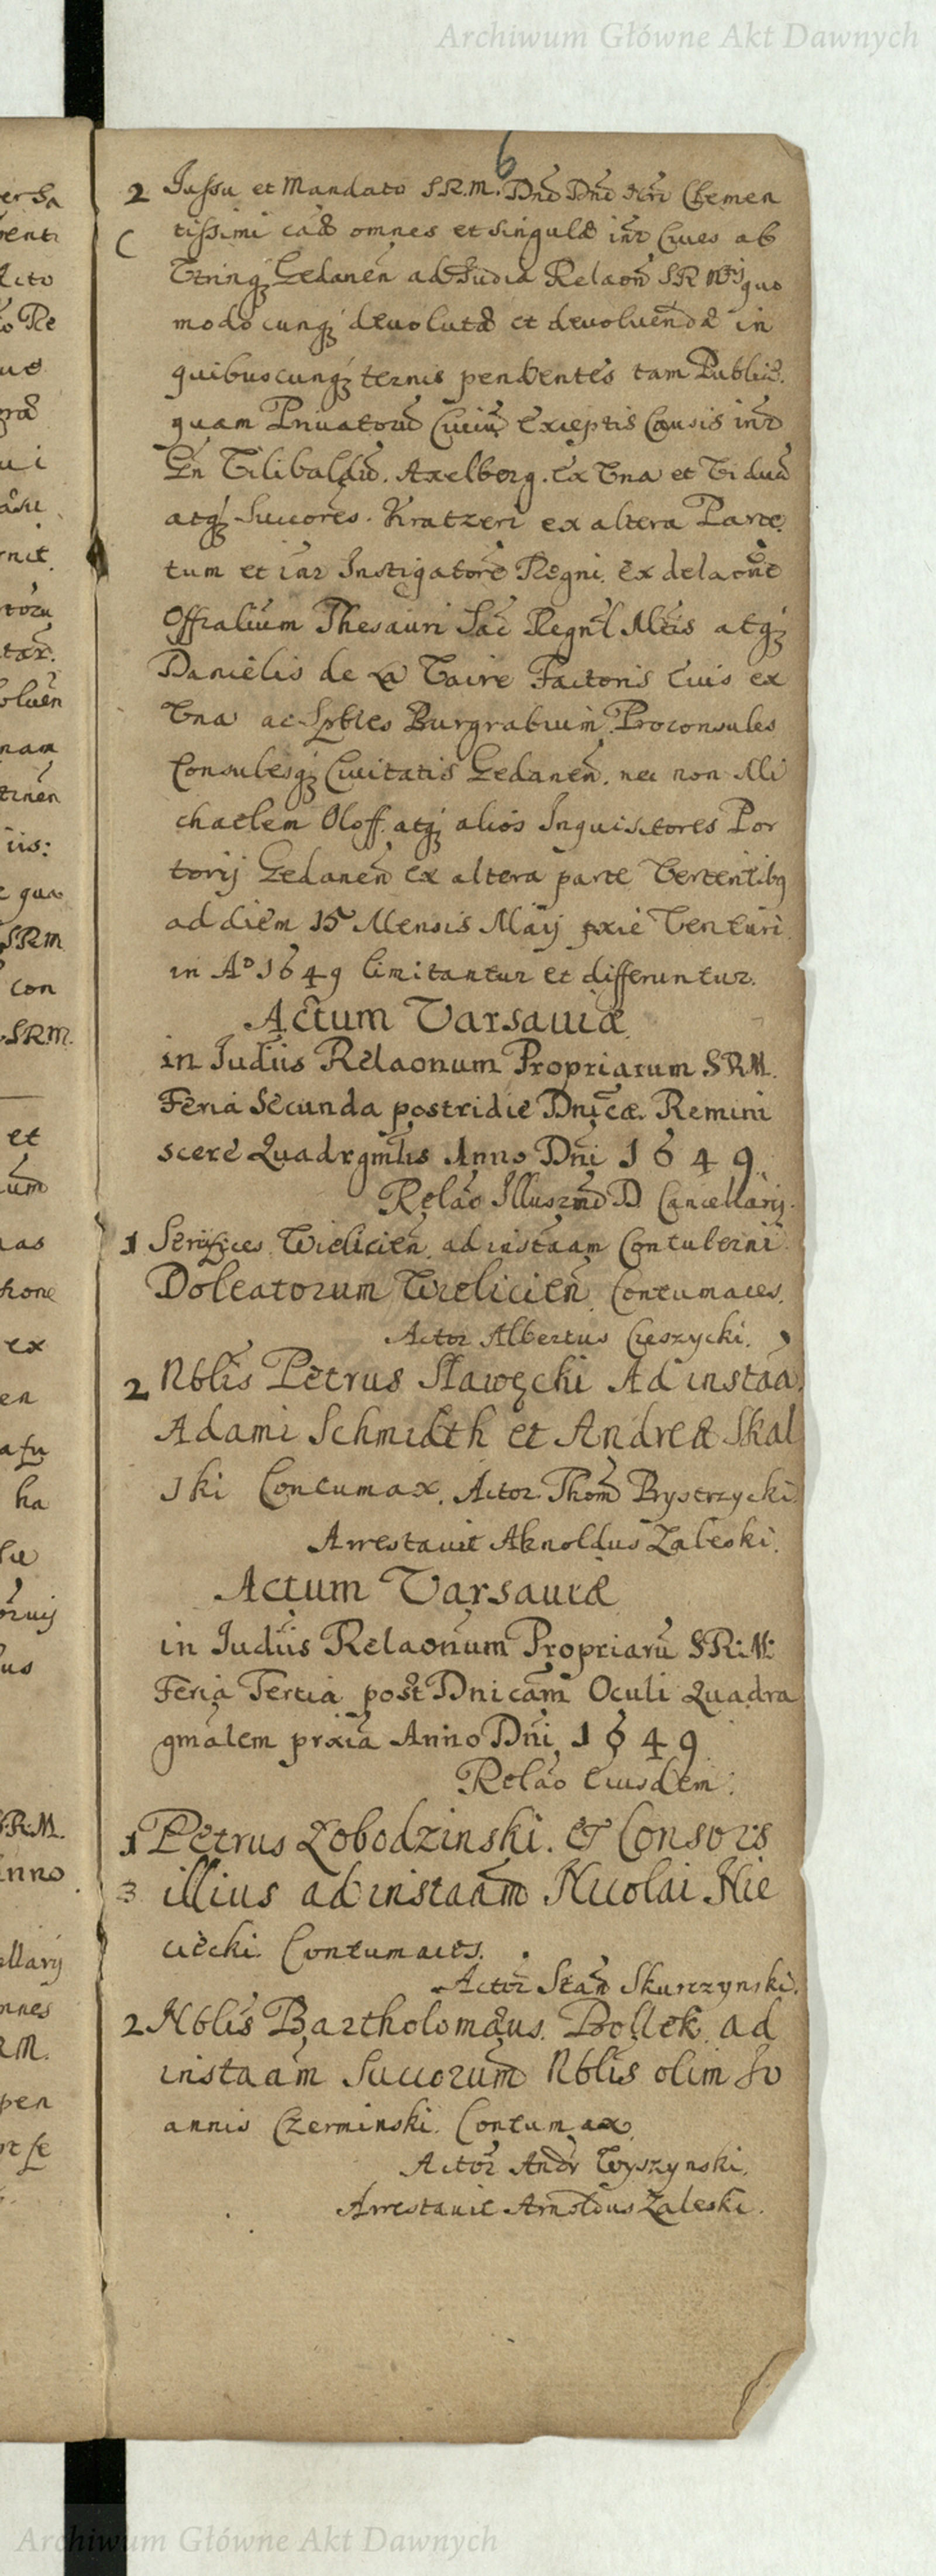 Archiwum Główne Akt Dawnych
6
2 Jussu et Mandato S.R.M. Dnd Dni Nri Clemen
C tissimi causæ omnes et singulæ intr Cives ab
Utrinq Gedanen ad Judia Relaon S R Mtis quo
modocunq devolutæ et devolvendæ in
quibuscunq ternis pendentes tam Public.
quam Privatoru Civiu Exceptis Causis intr
Gn Tilibaldu. Axelberg. Ex Una et Viduã
atq Succores. Kratzeri ex altera Parte
tum et intr Instigatore Regni. Ex delaone
Offialium Thesauri Sac Regnl Mtis atq
Danielis de La Vaire Factoris Eius ex
Una ac Sptles Burgrabium Proconsules
Consulesq Civitatis Gedanen. nec non Mi
chaelem Oloff. atq alios Inquisitores Por
torij Gedanen ex altera parte Vertentibq
ad diem 15 Mensis Maij pxie Venturi
in Aº 1649 limitantur et differuntur.
Actum Varsaviæ
in Judiis Relaonum Propriarum S R M.
Feria Secunda postridie Dnicæ Remini
scere Quadrgmlis Anno Dni 1649.
Relao Illusmd D Cancellarij.
1 Serifices Wielicien. ad instaam Contubernii
Doleatorum Wielicien. Contumaces.
Actor Albertus Cieszycki.
2 Nblis Petrus Sławęcki Ad instaa
Adami Schmidth et Andreæ Skal
ski Contumax. Actor Thom Bystrzycki
Arrestavit Aknoldus Zaleski.
Actum Varsaviæ
in Judiis Relaonum Propriaru S R: M:
Feria Tertia post Dnicam Oculi Quadra
gmalem prxia Anno Dni 1649
Relao Eiusdem.
1 Petrus Łobodzinski. & Consors
3 illius ad instaam Nicolai Nie
ciecki. Contumaces.
Actor Stan Skurczynski.
2 Nblis Bartholomæus. Bollek. ad
instaam Succorum Nblis olim Jo
annis Czerminski. Contumax
Actor Andr Wyszynski.
Arrestavit Arnoldus Zaleski.
Archiwum Główne Akt Dawnych